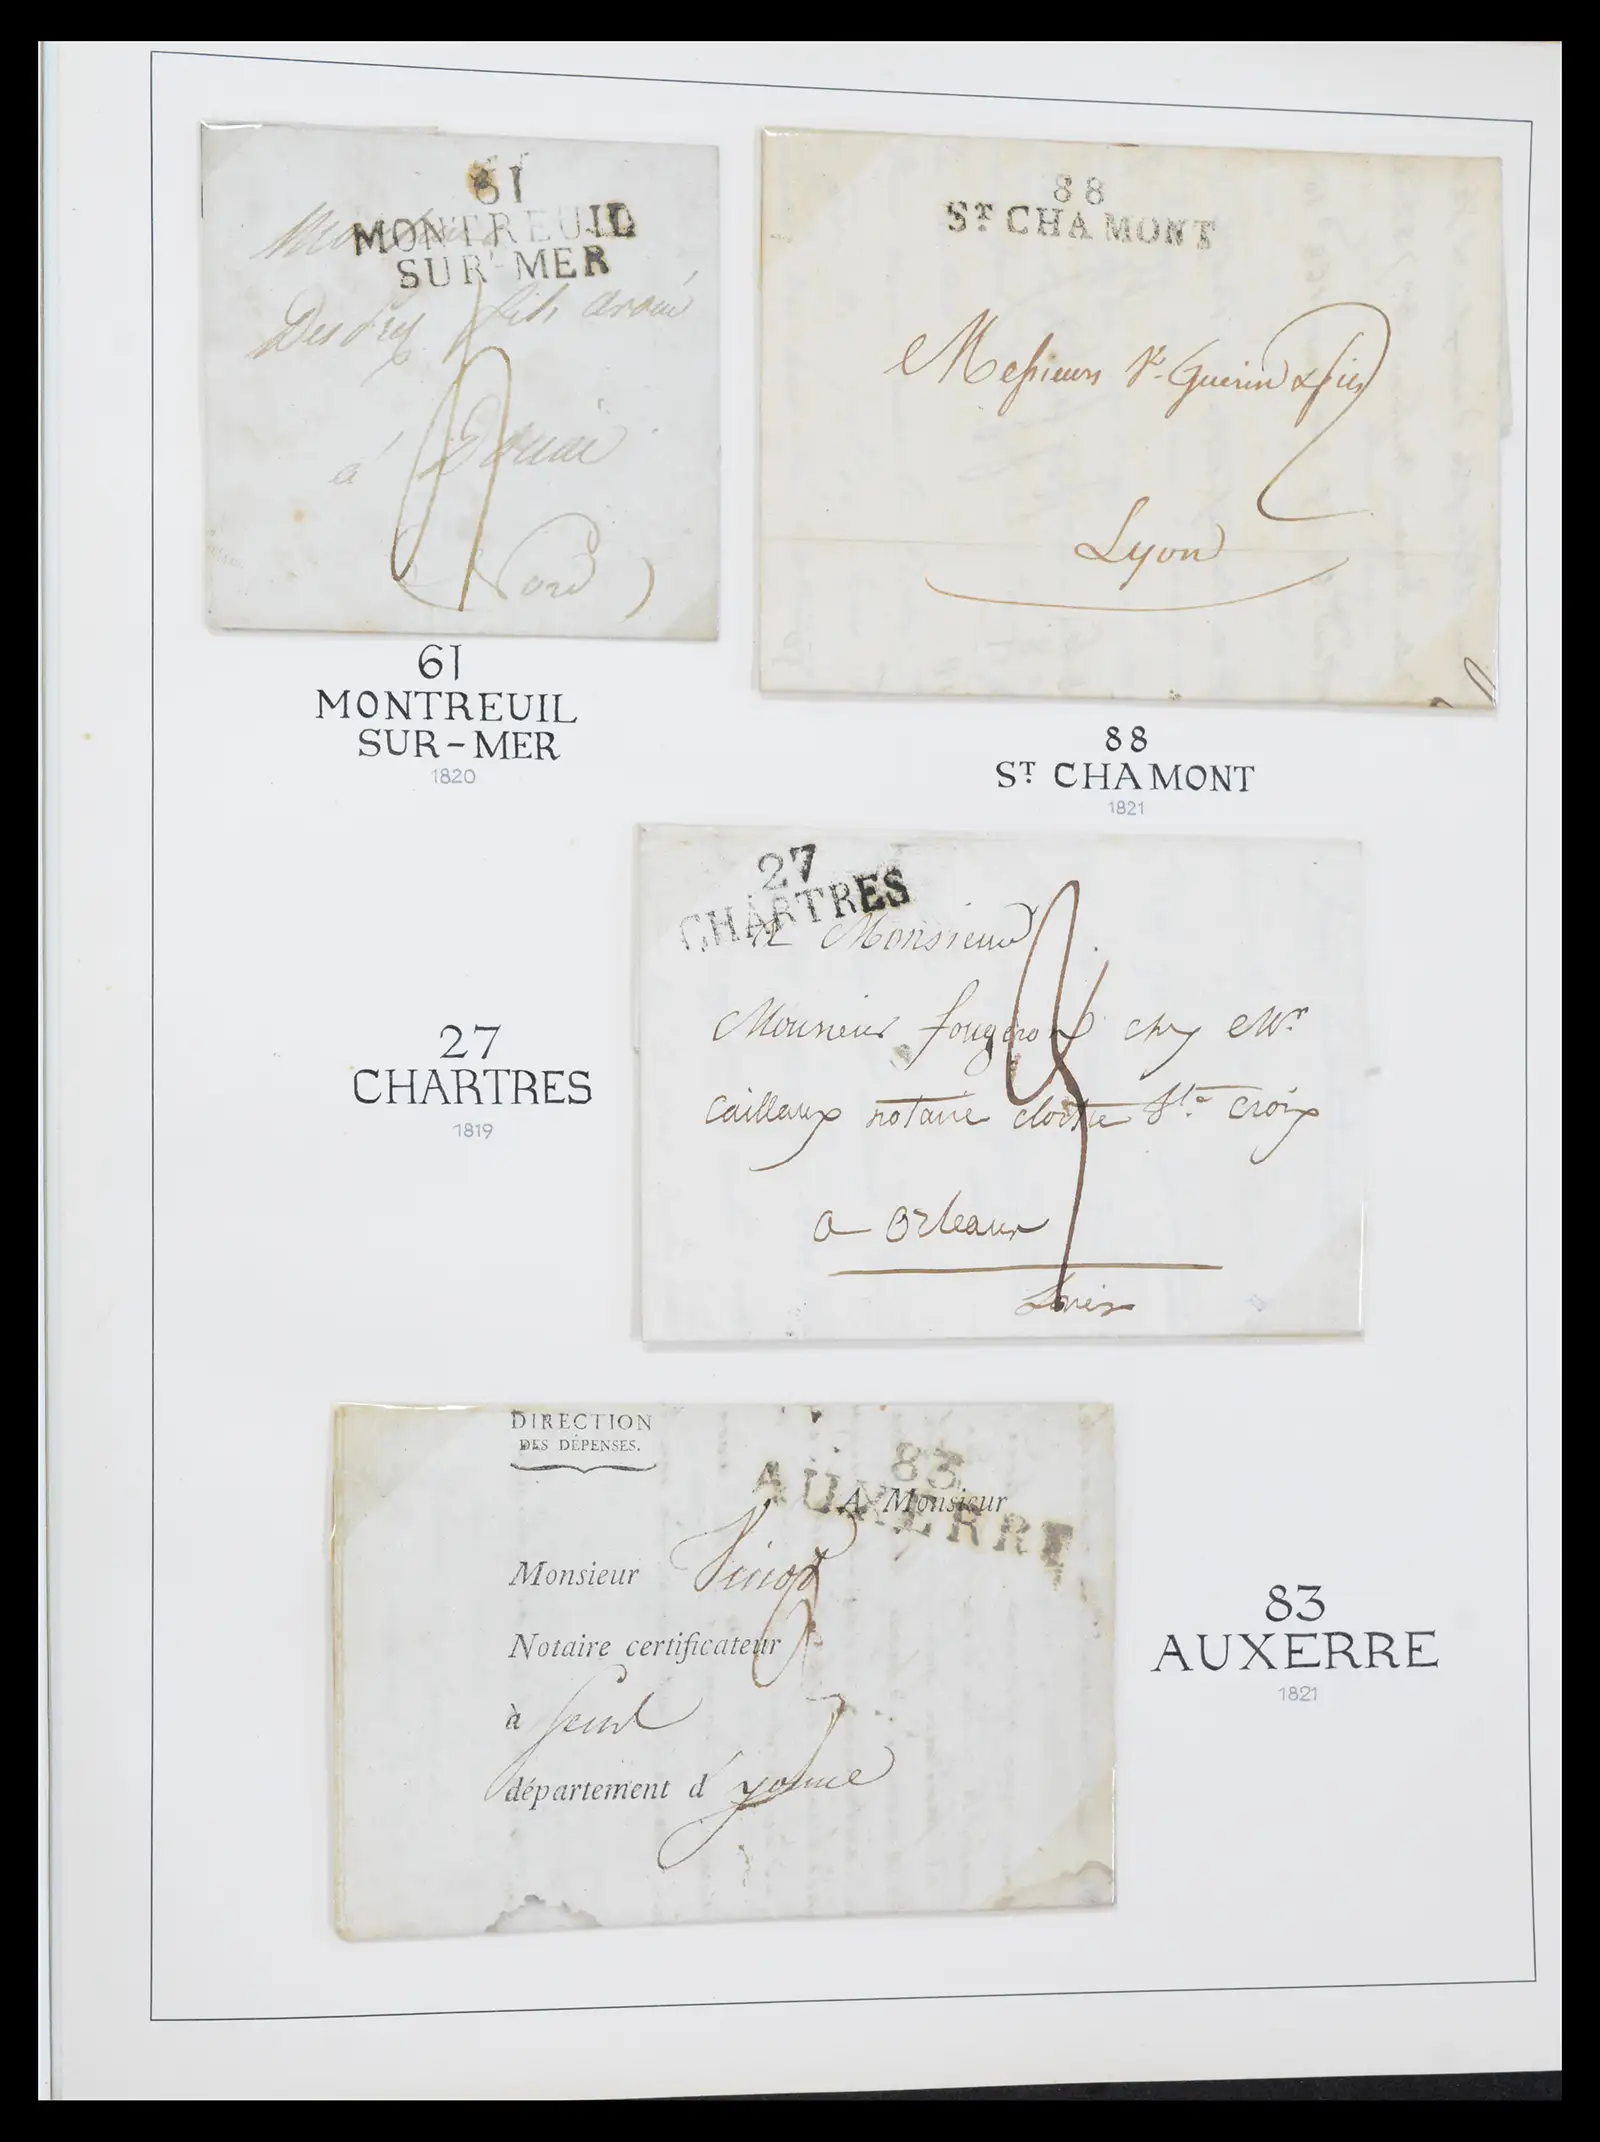 61
MONTREUIL
SUR-MER
Monsieur
fils avoué
à Douai
Nord
61
MONTREUIL
SUR-MER
1820
88
ST CHAMONT
Messieurs Ve Guerin & fils
2
Lyon
88
ST CHAMONT
1821
27
CHARTRES
A Monsieur
Monsieur fougeron chez Mr
cailleaux notaire cloitre Ste croix
a orleans
Loiret
27
CHARTRES
1819
DIRECTION
DES DÉPENSES.
83
AUXERRE
A Monsieur
Monsieur
Notaire certificateur
à
département d' yonne
83
AUXERRE
1821